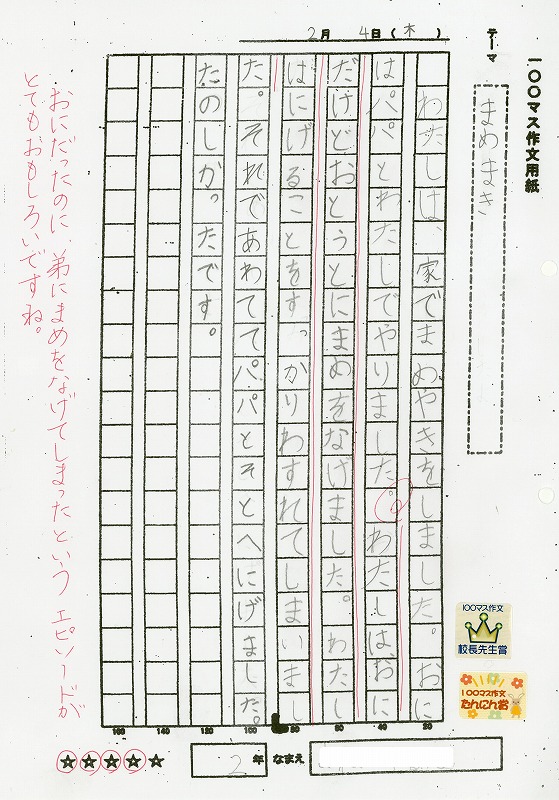 一〇〇マス作文用紙
テーマ
まめまき
2月 4日(木)
わたしは、家でまめやきをしました。おに
はパパとわたしでやりました。わたしはおに
だけどおとうとにまめをなげました。わたし
はにげることをすっかりわすれてしまいまし
た。それであわててパパとそとへにげました。
たのしかったです。
おにだったのに、弟にまめをなげてしまったという エピソードが
とてもおもしろいですね。
20
40
60
80
80
100
120
140
160
100マス作文
校長先生賞
100マス作文
たんにん賞
2年 なまえ